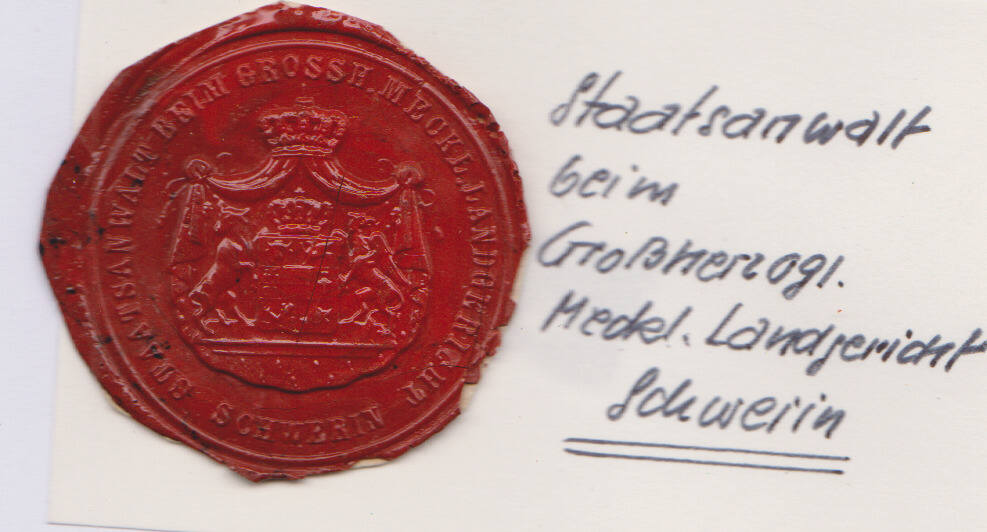 STAATSANWALT BEIM GROSSH. MECKL. LANDGERICHT
SCHWERIN
Staatsanwalt
beim
Großherzogl.
Meckl. Landgericht
Schwerin